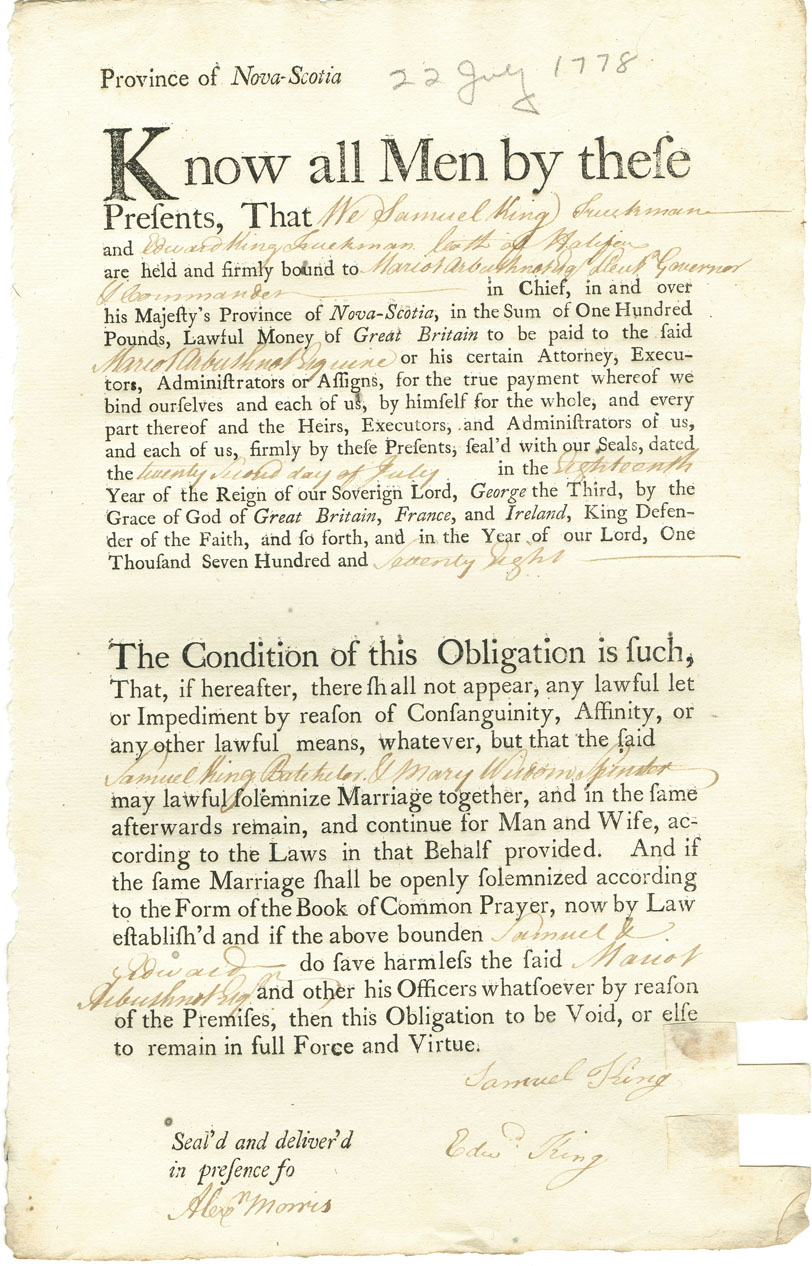 Province of Nova-Scotia 22 July 1778
Know all Men by theſe
Preſents, That We Samuel King Truckman
and Edward King Truckman both of Halifax
are held and firmly bound to Mariot Arbuthnot Esqr Lieut. Governor
& Commander in Chief, in and over
his Majeſty's Province of Nova-Scotia, in the Sum of One Hundred
Pounds, Lawful Money of Great Britain to be paid to the ſaid
Mariot Arbuthnot Esquire or his certain Attorney, Execu-
tors, Adminiſtrators or Aſſigns, for the true payment whereof we
bind ourſelves and each of us, by himſelf for the whole, and every
part thereof and the Heirs, Executors, and Adminiſtrators of us,
and each of us, firmly by theſe Preſents, ſeal'd with our Seals, dated
the twenty Second day of July in the Eighteenth
Year of the Reign of our Soverign Lord, George the Third, by the
Grace of God of Great Britain, France, and Ireland, King Defen-
der of the Faith, and ſo forth, and in the Year of our Lord, One
Thouſand Seven Hundred and Seventy Eight
The Condition of this Obligation is ſuch,
That, if hereafter, there ſhall not appear, any lawful let
or Impediment by reaſon of Conſanguinity, Affinity, or
any other lawful means, whatever, but that the ſaid
Samuel King Batchelor & Mary Wisdom Spinster
may lawful ſolemnize Marriage together, and in the ſame
afterwards remain, and continue for Man and Wife, ac-
cording to the Laws in that Behalf provided. And if
the ſame Marriage ſhall be openly ſolemnized according
to the Form of the Book of Common Prayer, now by Law
eſtabliſh'd and if the above bounden Samuel &
Edward do ſave harmleſs the ſaid Mariot
Arbuthnot Esqr and other his Officers whatſoever by reaſon
of the Premiſes, then this Obligation to be Void, or elſe
to remain in full Force and Virtue.
Samuel King
Seal'd and deliver'd
Edwd King
in preſence fo
Alexr Morris